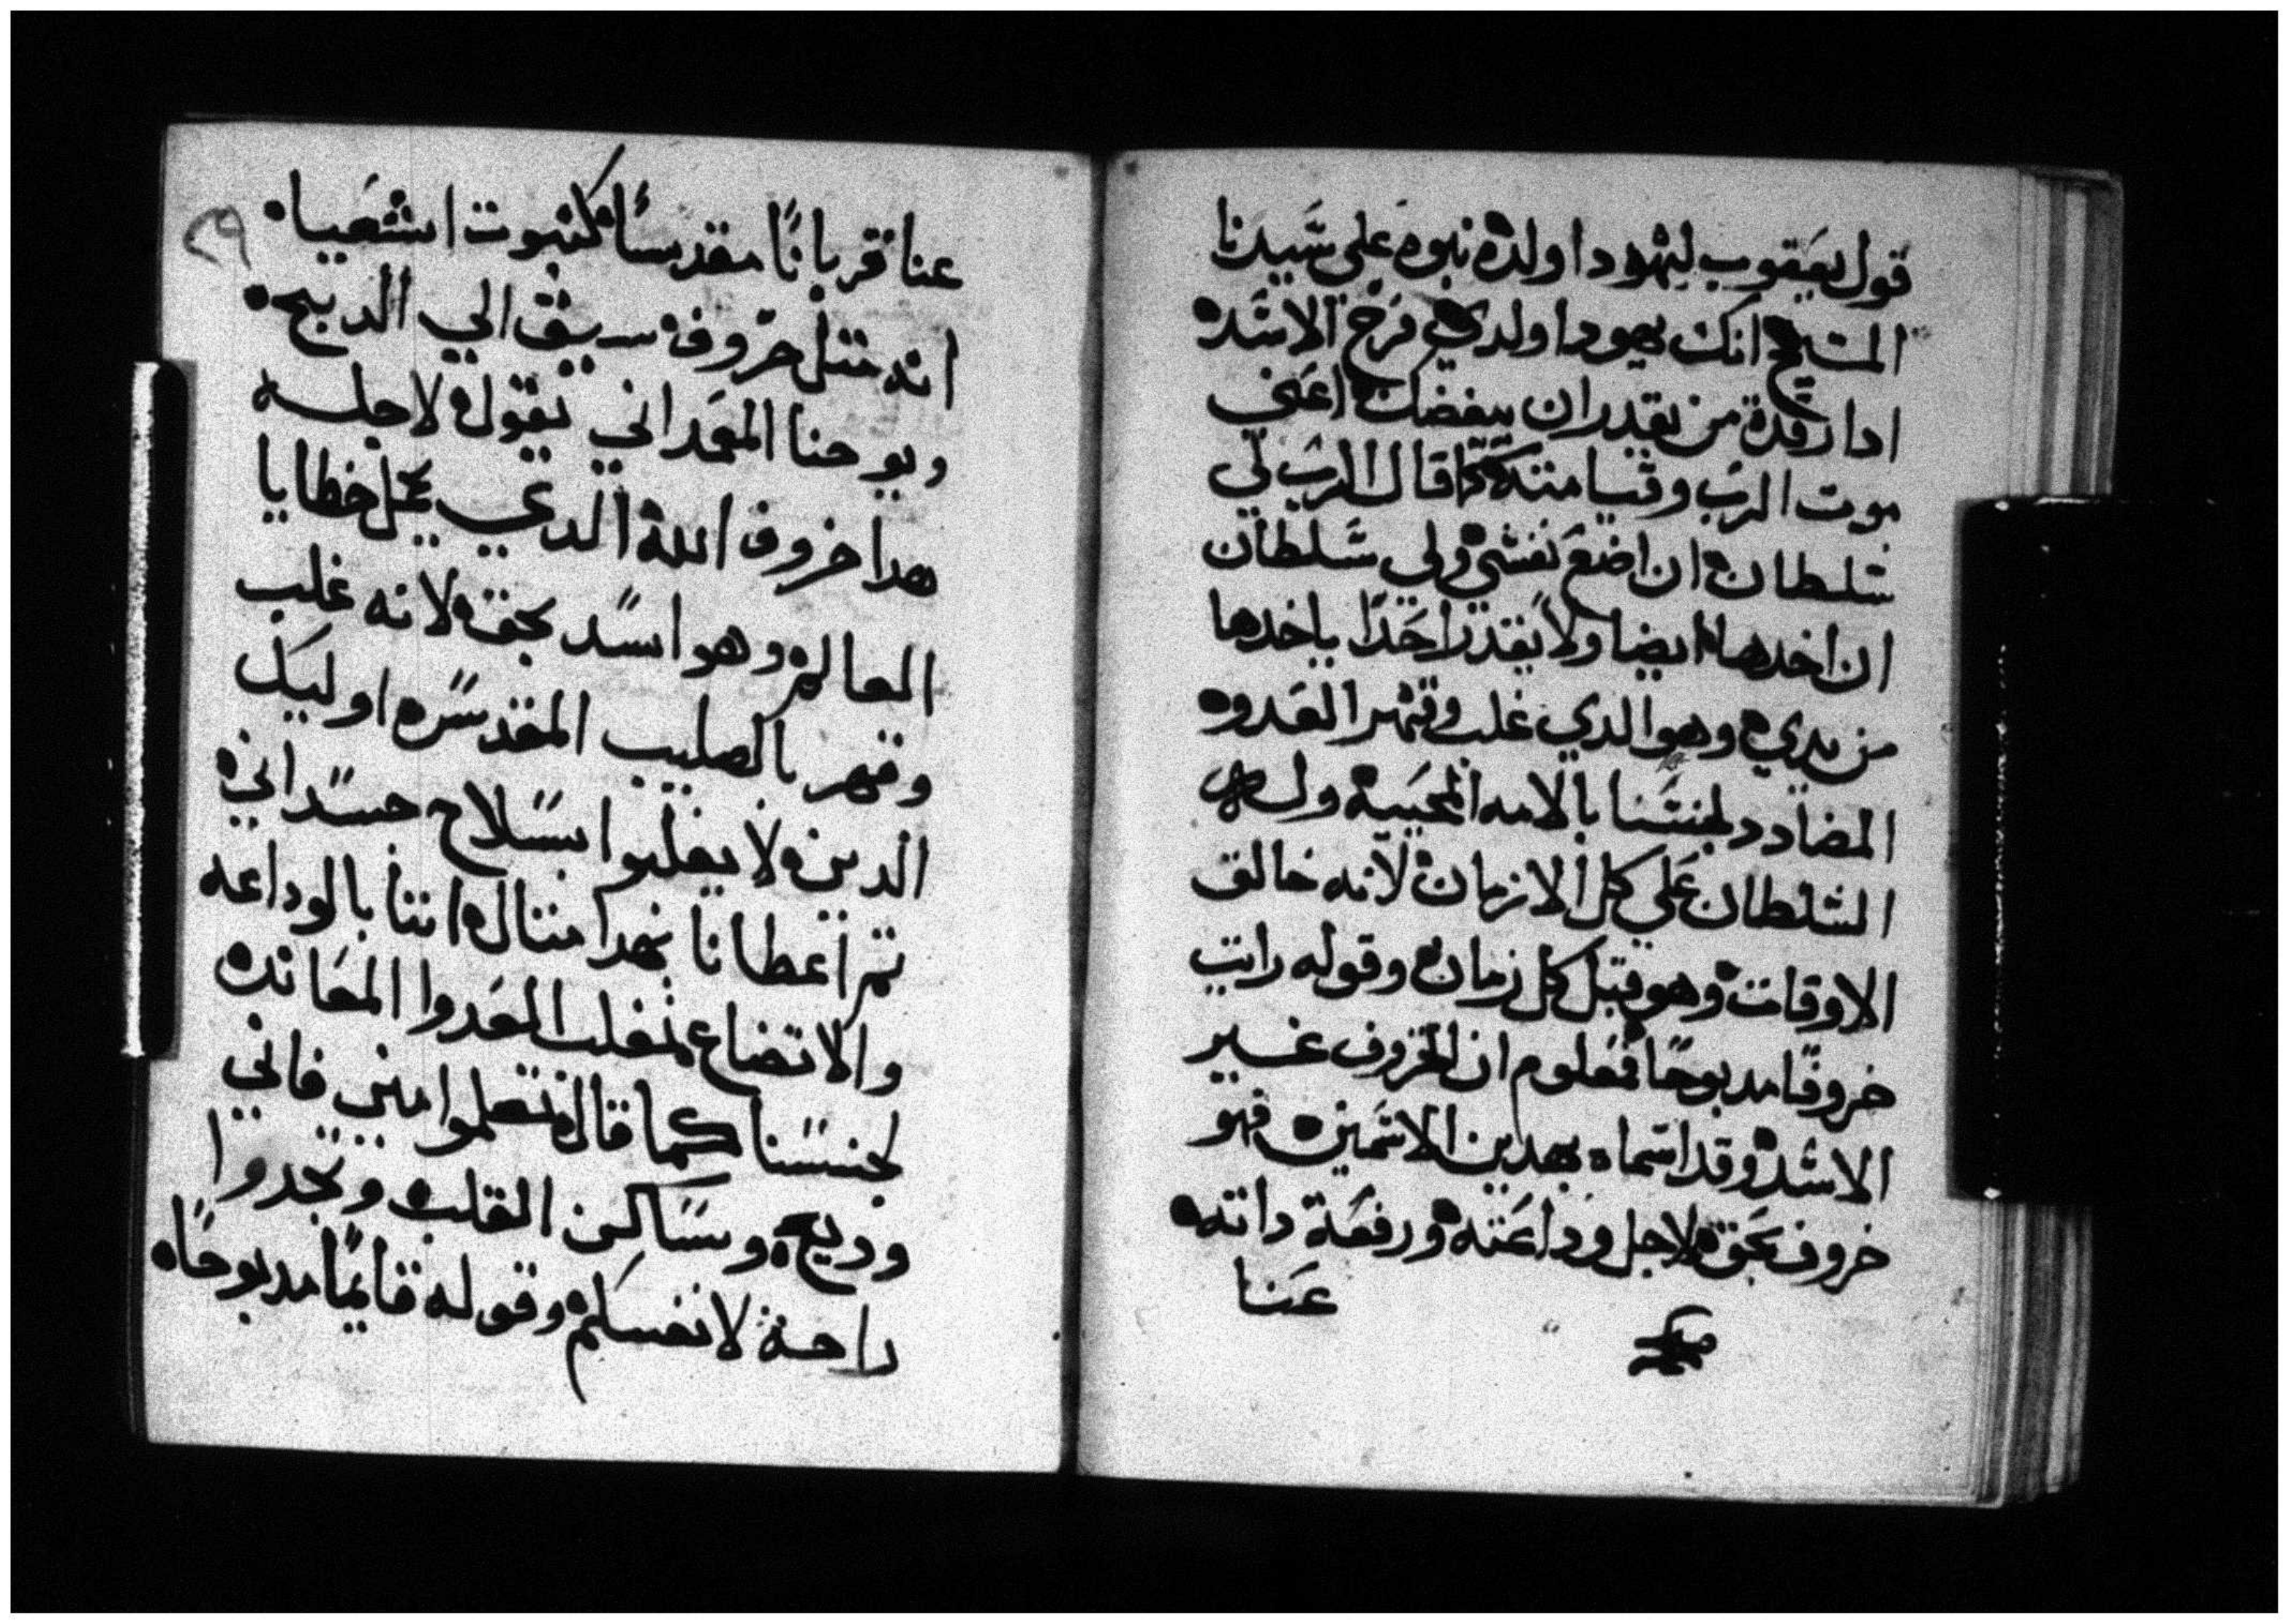 قول يعقوب ليهودا ولده نبوه على سيدنا
المسيح انك يهودا ولدي فرخ الاسد
ادا رقدة من يقدر ان يبغضك اعني
موت الرب وقيامته كما قال الرب لي
سلطان ان اضع نفسي ولي سلطان
ان اخدها ايضا ولا يقدر احدا ياخدها
من يدي وهو الدي غلب وقهر العدو
المضادد لجنسنا بالامه المحييه وله
السلطان علي كل الازمان لانه خالق
الاوقات وهو قبل كل زمان وقوله رايت
خروفا مدبوحا فمعلوم ان الخروف غير
الاسد وقد اسماه بهدين الاسمين فهو
خروف بحق لاجل وداعته ورفعة داته
عنا
٢٩
عنا قربانا مقدسا كنبوت اشعيا
انه متل خروف سيق الي الدبح
ويوحنا المعمداني يقول لاجله
هدا خروف الله الدي يحمل خطايا
العالم وهو اسد بحق لانه غلب
وقهر بالصليب المقدس اوليك
الدين لا يغلبوا بسلاح جسداني
تم اعطانا بهدا متال اننا بالوداعه
والاتضاع نغلب العدوا المعاند
لجنسنا كما قال تعلموا مني فاني
وديع وساكن القلب وتجدوا
راحة لانفسكم وقوله قايما مدبوحا